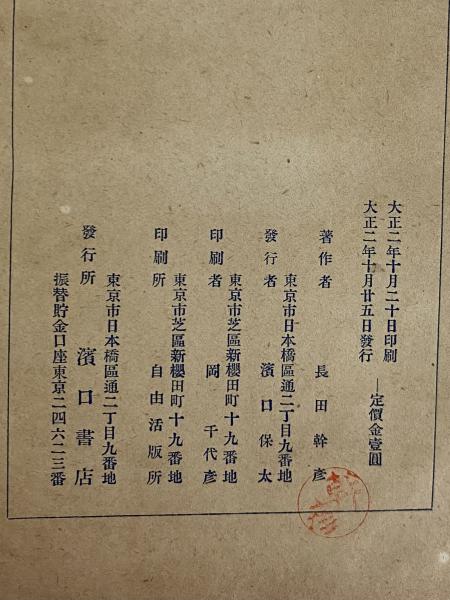 大正二年十月二十日印刷
大正二年十月廿五日發行
定價金壹圓
著作者 長田幹彦
東京市日本橋區通二丁目九番地
發行者 濱口保太
東京市芝區新櫻田町十九番地
印刷者 岡千代彦
東京市芝區新櫻田町十九番地
印刷所 自由活版所
東京市日本橋區通二丁目九番地
發行所 濱口書店
振替貯金口座東京二四六二三番
幹彦